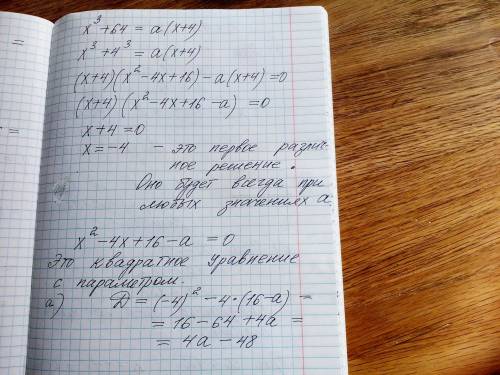 x³+64 = a(x+4)
x³+4³ = a(x+4)
(x+4)(x²-4x+16)-a(x+4)=0
(x+4)(x²-4x+16-a) =0
x+4=0
x=-4 - это первое различ-
ное решение.
Оно будет всегда при
любых значениях a
x²-4x+16-a =0
Это квадратное уравнение
с параметром.
a) D = (-4)²-4·(16-a) =
= 16-64+4a =
= 4a-48